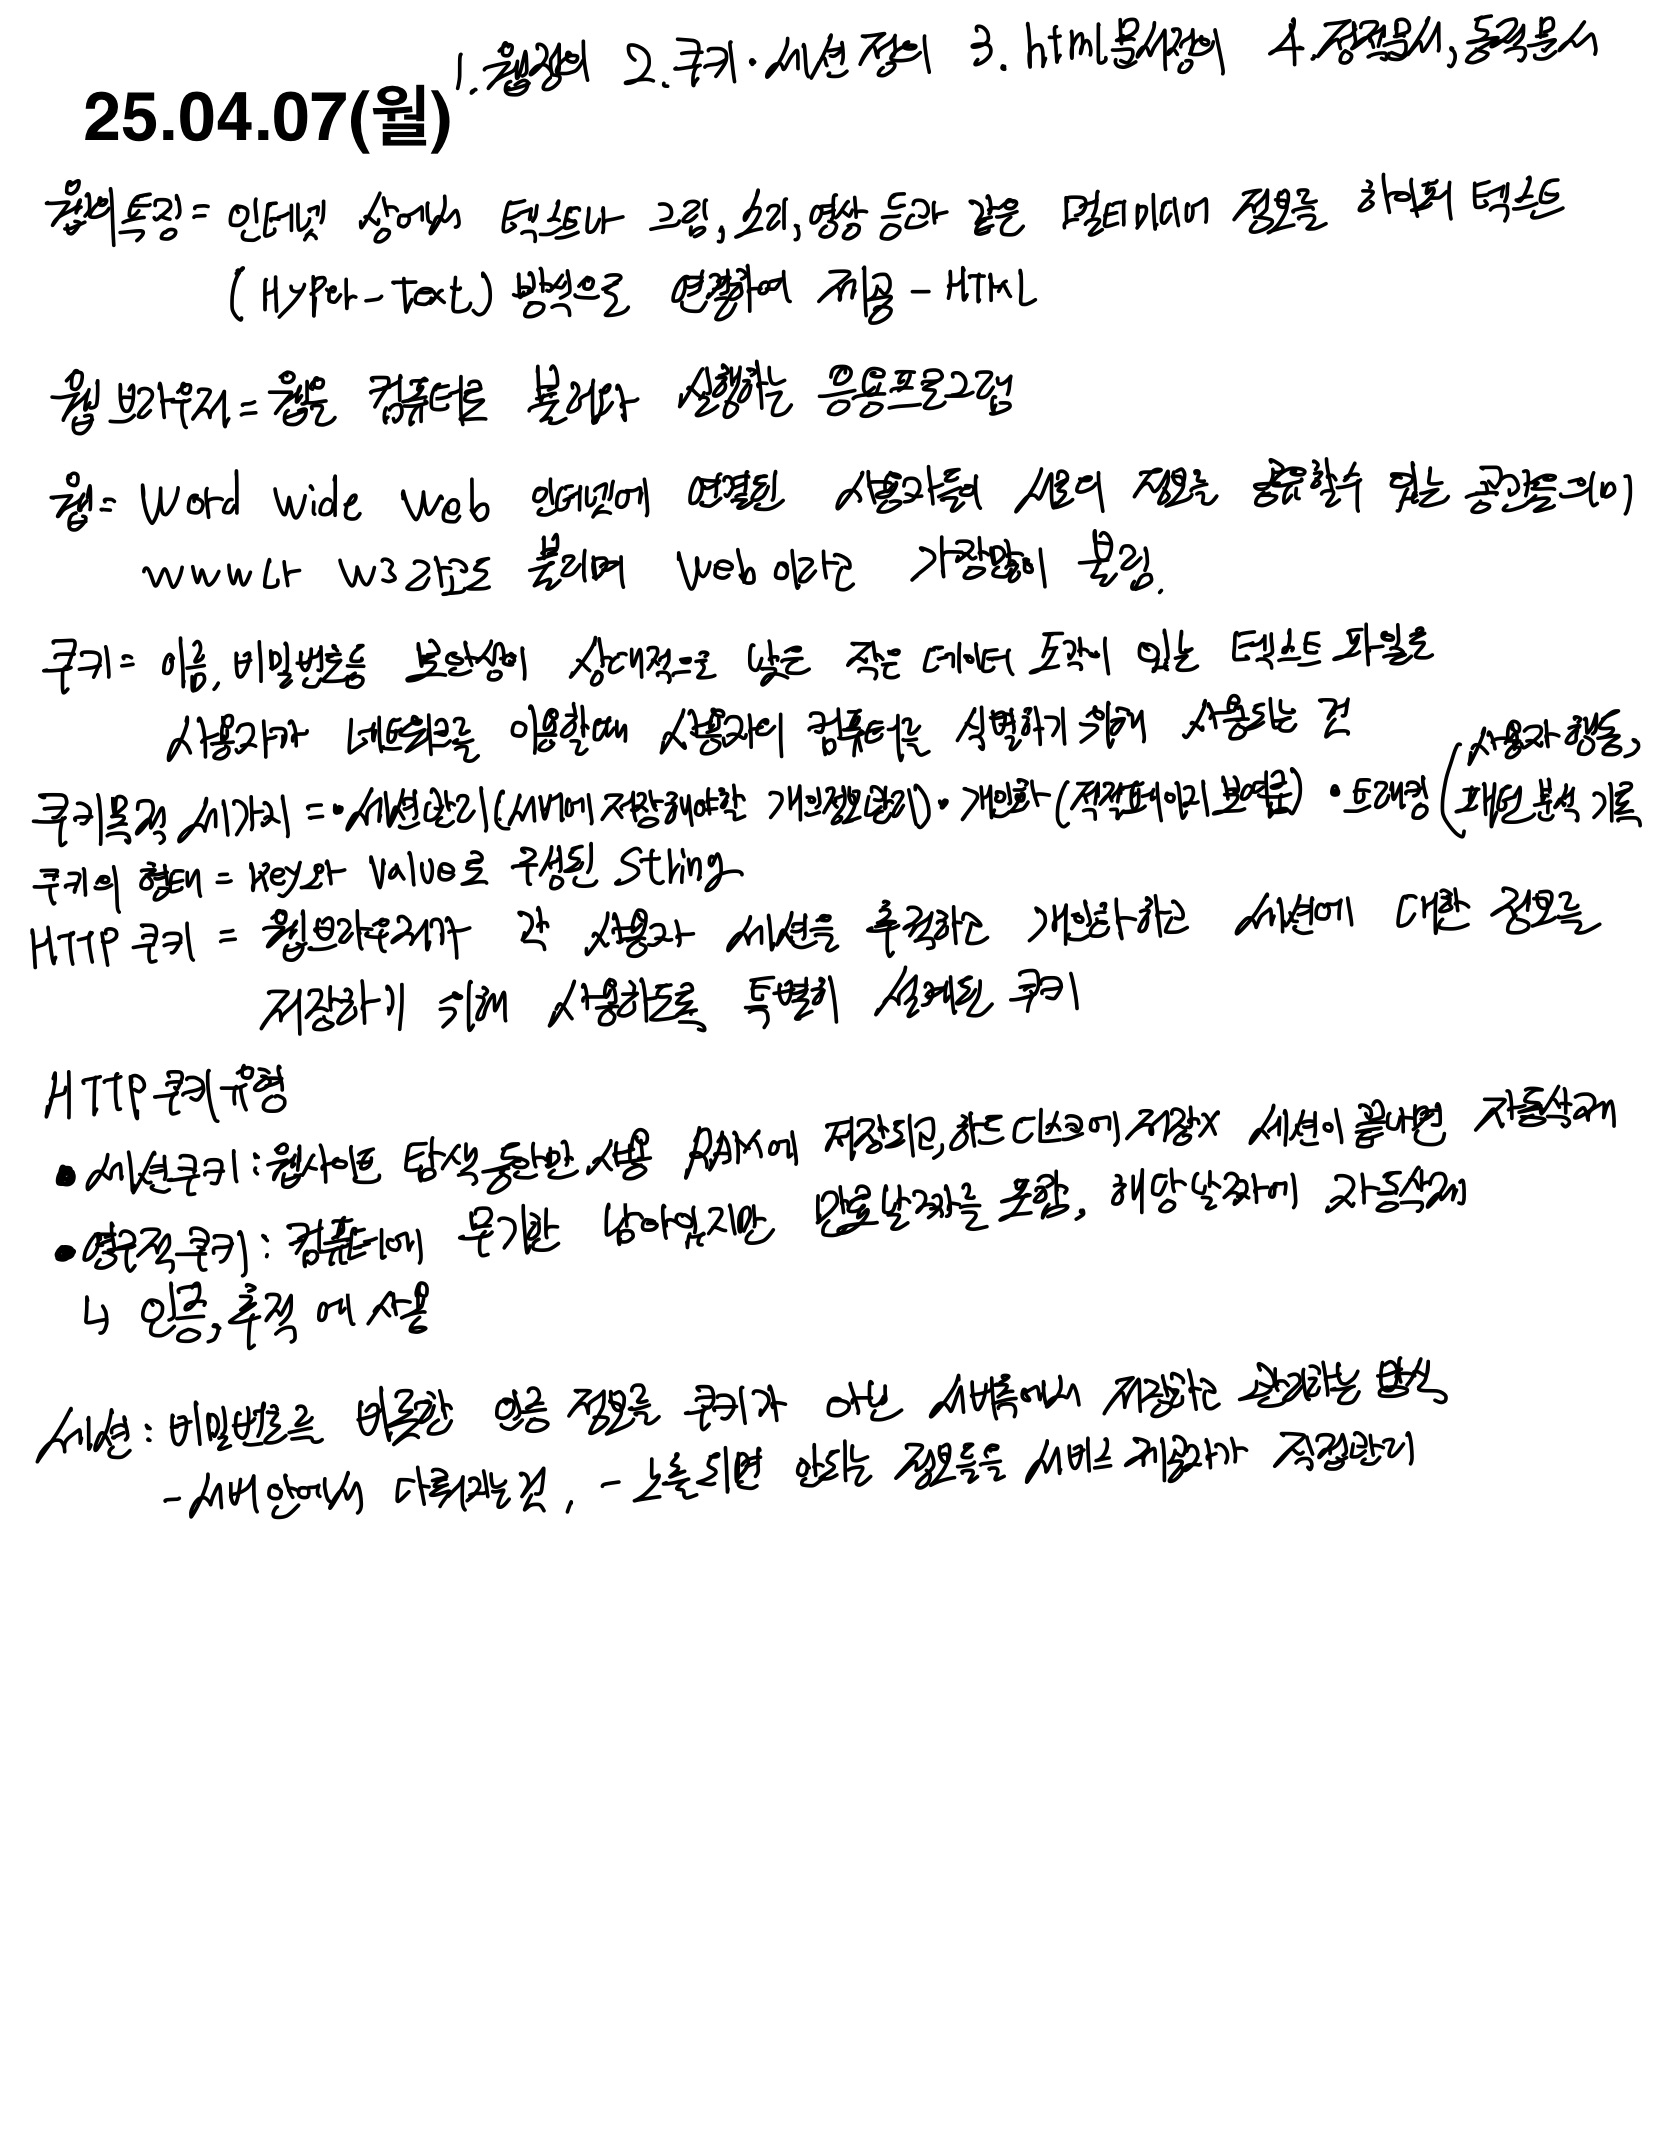 1. 웹정의 2. 쿠키·세션 정의 3. html문서정의 4. 정적문서, 동적문서
25.04.07(월)
웹의특징 = 인터넷 상에서 텍스트나 그림, 소리, 영상 등과 같은 멀티미디어 정보를 하이퍼 텍스트
(Hyper-Text) 방식으로 연결하여 제공 - HTML
웹브라우저 = 웹을 컴퓨터로 불러와 실행하는 응용프로그램
웹 = Word wide web 인터넷에 연결된 사용자들이 서로의 정보를 공유할수 있는 공간을 의미
www나 w3라고도 불리며 web이라고 가장많이 불림.
쿠키 = 이름, 비밀번호등 보안성이 상대적으로 낮은 작은 데이터 도각이 있는 텍스트 파일로
사용자가 네트워크를 이용할때 사용자의 컴퓨터를 식별하기 위해 사용되는 것
쿠키목적 세가지 = •세션관리(서버에 저장해야할 개인정보관리) • 개인화(적적페이지 보여줌) • 트래킹 (사용자 행동,
패턴 분석 기록
쿠키의 형태 = key와 Value로 구성된 String
HTTP 쿠키 = 웹브라우저가 각 사용자 세션을 추적하고 개인화하고 세션에 대한 정보를
저장하기 위해 사용하도록 특별히 설계된 쿠키
HTTP 쿠키유형
• 세션쿠키 : 웹사이트 탐색 동안만 사용 RAM에 저장되고, 하드 디스크에 저장x 세션이 끝나면 자동삭제
• 영구적쿠키 : 컴퓨터에 무기한 남아있지만 만료날짜를 포함, 해당날짜에 자동삭제
↳ 인증, 추적 에 사용
세션 : 비밀번호르 비롯한 인증 정보를 쿠키가 아닌 서버측에서 저장하고 관리하는 방식
- 서버안에서 다뤄지는것, - 노출되면 안되는 정보들을 서비스 제공자가 직접관리